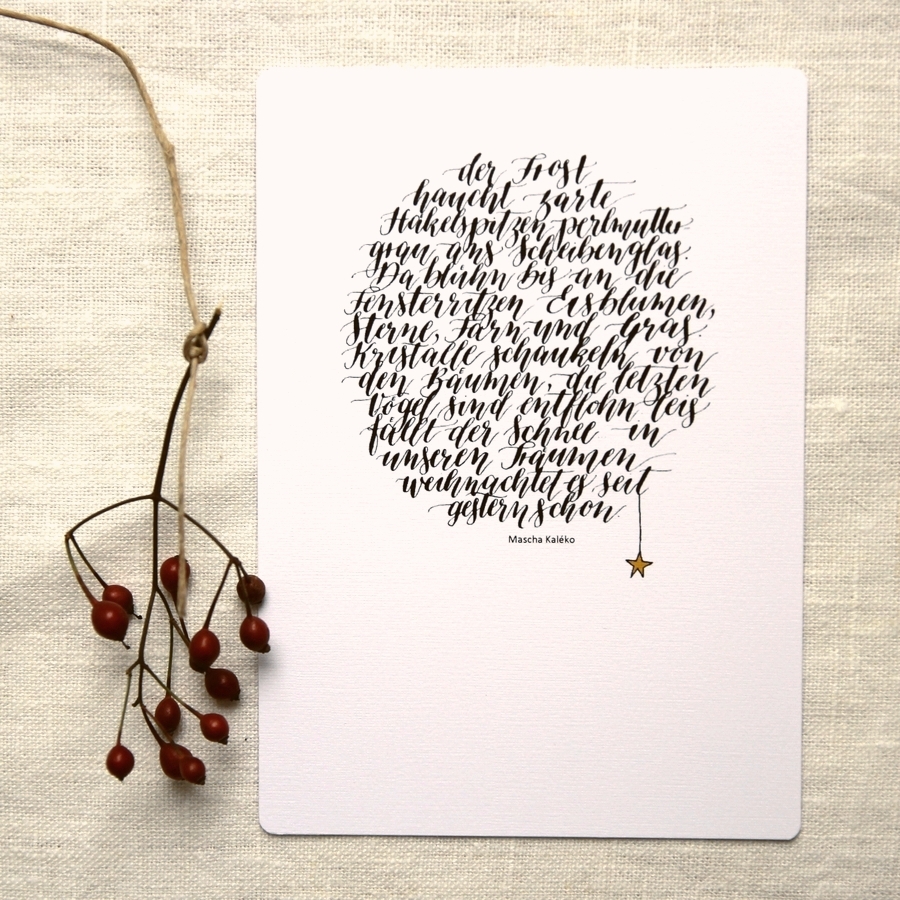 der Frost
haucht zarte
Häkelspitzen perlmutter
grau ans Scheibenglas.
Da blühn bis an die
Fensterritzen Eisblumen,
Sterne, Farn und Gras.
Kristalle schaukeln von
den Bäumen, die letzten
Vögel sind entflohn leis
fällt der Schnee in
unseren Träumen
weihnachtet es seit
gestern schon.
Mascha Kaléko